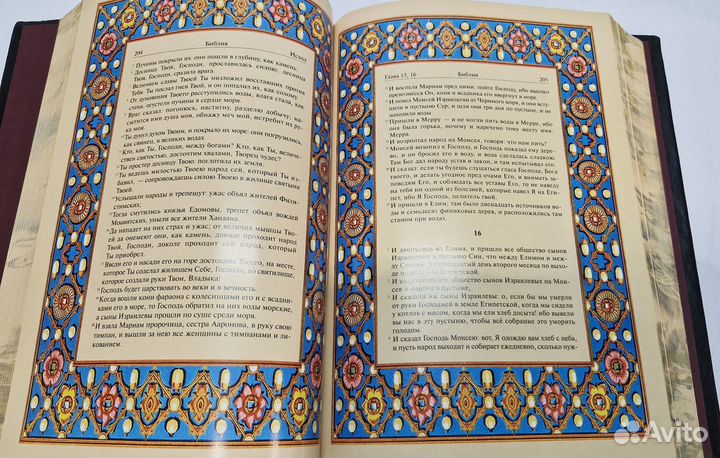 204
Библия
Исход
Пучины покрыли их: они пошли в глубину, как камень.
Десница Твоя, Господи, прославилась силою; десница
Твоя, Господи, сразила врага.
Величием славы Твоей Ты низложил восставших против
Тебя. Ты послал гнев Твой, и он попалил их, как солому.
От дуновения Твоего расступились воды, влага стала, как
стена, огустели пучины в сердце моря.
Враг сказал: погонюсь, настигну, разделю добычу; на-
сытится ими душа моя, обнажу меч мой, истребит их ру-
ка моя.
Ты дунул духом Твоим, и покрыло их море: они погрузились,
как свинец, в великих водах.
Кто, как Ты, Господи, между богами? Кто, как Ты, величе-
ствен святостью, досточтим хвалами, Творец чудес?
Ты простер десницу Твою: поглотила их земля.
Ты ведешь милостью Твоею народ сей, который Ты из-
бавил, — сопровождаешь силою Твоею в жилище святыни
Твоей.
Услышали народы и трепещут: ужас объял жителей Фили-
стимских;
Тогда смутились князья Едомовы, трепет объял вождей
Моавитских, уныли все жители Ханаана.
Да нападет на них страх и ужас; от величия мышцы Тво-
ей да онемеют они, как камень, доколе проходит народ
Твой, Господи, доколе проходит сей народ, который
Ты приобрел.
Введи его и насади его на горе достояния Твоего, на месте,
которое Ты соделал жилищем Себе, Господи, во святилище,
которое создали руки Твои, Владыка!
Господь будет царствовать во веки и в вечность.
Когда вошли кони фараона с колесницами его и с всадни-
ками его в море, то Господь обратил на них воды морские,
а сыны Израилевы прошли по суше среди моря.
И взяла Мариам пророчица, сестра Ааронова, в руку свою
тимпан, и вышли за нею все женщины с тимпанами и ли-
кованием.
Глава 15, 16
Библия
205
И воспела Мариам пред ними: пойте Господу, ибо высоко
превознесся Он, коня и всадника его ввергнул в море.
И повел Моисей Израильтян от Чермного моря, и они всту-
пили в пустыню Сур; и шли они три дня по пустыне и не
находили воды.
Пришли в Мерру — и не могли пить воды в Мерре, ибо
она была горька, почему и наречено тому месту имя:
Мерра.
И возроптал народ на Моисея, говоря: что нам пить?
Моисей возопил к Господу, и Господь показал ему дере-
во, и он бросил его в воду, и вода сделалась сладкою.
Там Бог дал народу устав и закон и там испытывал его.
И сказал: если ты будешь слушаться гласа Господа, Бога
твоего, и делать угодное пред очами Его, и внимать за-
поведям Его, и соблюдать все уставы Его, то не наведу
на тебя ни одной из болезней, которые навел Я на Еги-
пет, ибо Я Господь, целитель твой.
И пришли в Елим; там было двенадцать источников во-
ды и семьдесят финиковых дерев, и расположились там
станом при водах.
16
И двинулись из Елима, и пришло все общество сынов
Израилевых в пустыню Син, что между Елимом и меж-
ду Синаем, в пятнадцатый день второго месяца по выхо-
де их из земли Египетской.
И возроптало все общество сынов Израилевых на Мои-
сея и Аарона в пустыне,
И сказали им сыны Израилевы: о, если бы мы умерли
от руки Господней в земле Египетской, когда мы сидели
у котлов с мясом, когда мы ели хлеб досыта! ибо вывели
вы нас в эту пустыню, чтобы всё собрание это уморить
голодом.
И сказал Господь Моисею: вот, Я одождю вам хлеб с неба,
и пусть народ выходит и собирает ежедневно, сколько нуж-
Avito